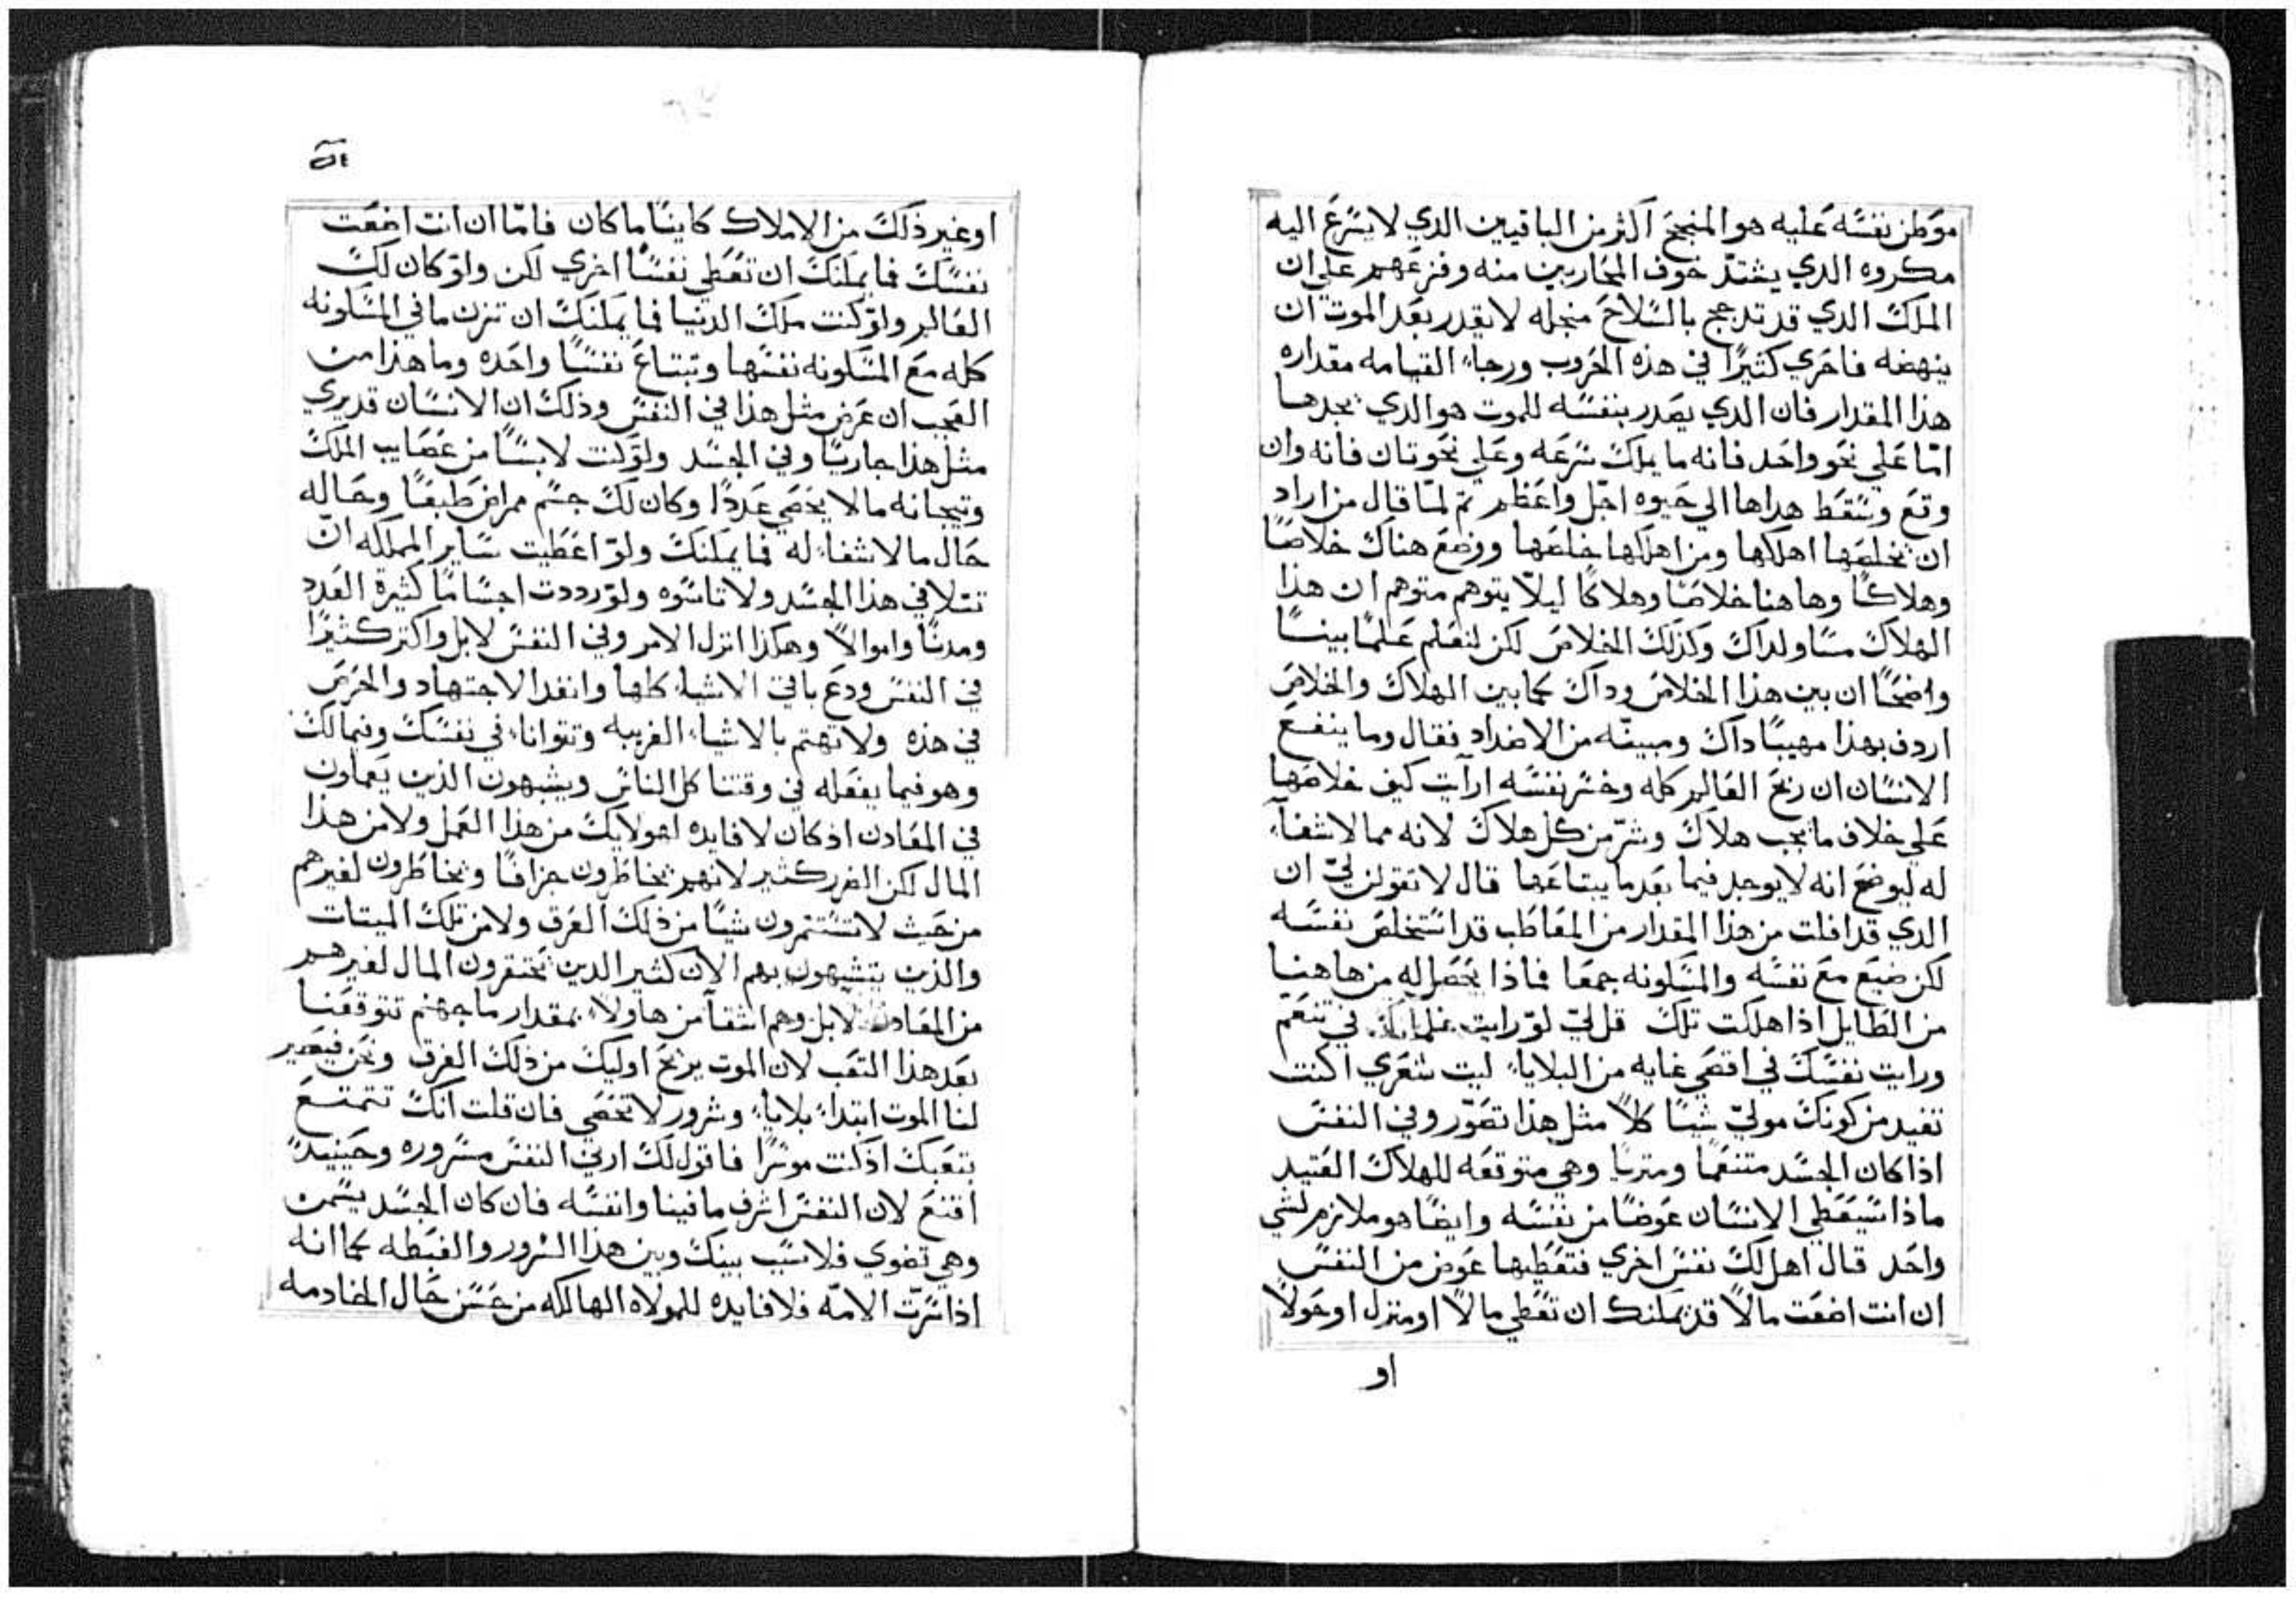 موطن نفسه عليه هو المنجح اكثر من الباقيين الدي لا يسرع اليه
مكروه الدي يشتد خوف المحاربين منه وفزعهم علي ان
الملك الدي قد تدجج بالسلاح منجله لا يقدر بعد الموت ان
ينهضه فاحري كثيرًا في هذه الحروب ورجاء القيامه مقداره
هذا المقدار فان الدي يصدر بنفسه للموت هو الدي يجدها
امّا علي نحو واحد فانه ما يملك سرعه وعلي نحو تان فانه وان
وقع وسقط هداها الي حيوه اجل واعظم تم لمّا قال من اراد
ان يخلصها اهلكها ومن اهلكها خلصها ووضع هناك خلاصًا
وهلاكًا وهاهنا خلاصًا وهلاكًا ليلّا يتوهم متوهم ان هذا
الهلاك مساو لداك وكذلك الخلاص لكن لنعلم علمًا بينًا
واضحًا ان بين هذا الخلاص وداك كما بين الهلاك والخلاص
اردف بهذا مهيبًا داك ومبينه من الاضداد فقال وما ينفع
الانسان ان ربح العالم كله وخسر نفسه ارآيت كيف خلاصها
علي خلاف ما يجب هلاك وشرّ من كل هلاك لانه مما لا شفآء
له ليوضح انه لا يوجد فيما بعد ما يبتاعها قال لا تقولن ليّ ان
الدي قد افلت من هذا المقدار من المعاطب قد استخلص نفسه
لكن ضيع مع نفسه والمسكونه جمعا فماذا يحصل له من هاهنا
من الطايل اذا هلكت تلك قل ليّ لوّ رايت غلمانك في تنعم
ورايت نفسك في اقصي غايه من البلاياء ليت شعري اكنت
تفيد من كونك موليّ شيًا كلاّ مثل هذا تصوّر وفي النفس
اذا كان الجسد متنعمًا ومتريا وهي متوقعه للهلاك العتيد
ماذا سيعطي الانسان عوضًا من نفسه وايضًا هو ملازم لشي
واحد قال اهل لك نفس اخري فتعطيها عوض من النفس
ان انت اضعت مالاً قد يمكنك ان تعطي مالاً او منزل او حولاً
او
اه
او غير ذلك من الاملاك كاينًا ما كان فامّا ان انت اضعت
نفسك فما يمكنك ان تعطي نفسًا اخري لكن ولو كان لك
العالم ولوّ كنت ملك الدنيا فما يمكنك ان تزن ما في المسكونه
كله مع المسكونه نفسها وتبتاع نفسًا واحده وما هذا من
العجب ان عرض مثل هذا في النفس وذلك ان الانسان قد يري
مثل هذا جاريًا وفي الجسد ولو كنت لابسًا من عصايب الملك
وتيجانه ما لا يحصي عددًا وكان لك جسم ممراض طبعًا وحاله
حال ما لا شفاء له فما يمكنك ولوّ اعطيت ساير المملكه انّ
تتلافي هذا الجسد ولا تاسوه ولو رددت اجسامًا كثيرة العدد
ومدنًا واموالاً وهكذا انزل الامر وفي النفس لا بل واكتر كثيرًا
في النفس ودع باقي الاشياء كلها وانفد الاجتهاد والحرص
في هذه ولا تهتم بالاشياء الغريبه وتتواناء في نفسك وفيما لك
وهو فيما يفعله في وقتنا كل الناس ويشبهون الذين يعملون
في المعادن اذ كان لا فايده لهولايك من هذا العمل ولا من هذا
المال لكن الضرر كتير لانهم يخاطرون جزافًا ويخاطرون لغيرهم
من حيث لا تستتمرون شيًا من ذلك العرق ولا من تلك الميتات
والذين يتشبهون بهم الآن كثير الدين يحتفرون المال لغيرهم
من المعادن لا بل وهم اشقآ من هاولاء بمقدار ما جهنم تتوقعنا
بعد هذا التعب لان الموت يريح اوليك من ذلك العرق ونحن فيصير
لنا الموت ابتداء بلاياء وشرور لا تحصي فان قلت انك تتمتع
بتعبك اذ كنت موسرًا فاقول لك ارني النفس مسروره وحينيدً
اقنع لان النفس اشرف ما فينا وانفسه فان كان الجسد يسمن
وهي تضوي فلا سبب بينك وبين هذا السرور والغبطه كما انه
اذا سرّت الامّه فلا فايده للمولاه الهالكه من حسن حال الخادمه